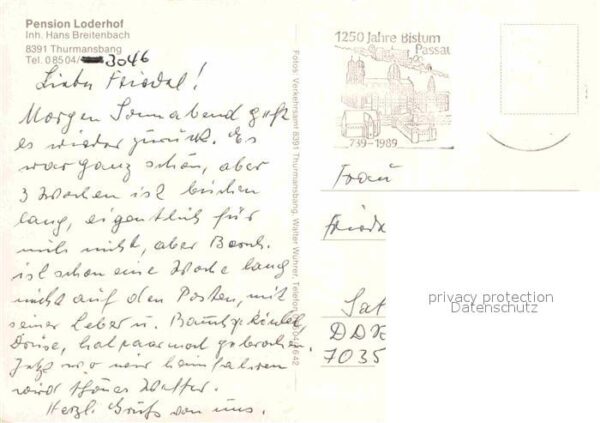 Pension Loderhof
Inh. Hans Breitenbach
8391 Thurmansbang
Tel. 08504/ 3046
Liebe Friedel!
Morgen Sonnabend geht
es wieder zurück. Es
war ganz schön, aber
3 Wochen ist bischen
lang, eigentlich für
mich nicht, aber
ist schon eine Woche lang
nicht auf den Posten, mit
seiner Leber u.
hat paar mal gebrochen.
Jetzt wo wir heimfahren
wird schönes Wetter.
Herzl. Grüße von uns.
Fotos: Verkehrsamt 8391 Thurmansbang, Walter Wuhrer, Telefon
1250 Jahre Bistum
Passau
739-1989
Frau
DDR
7035
privacy protection
Datenschutz